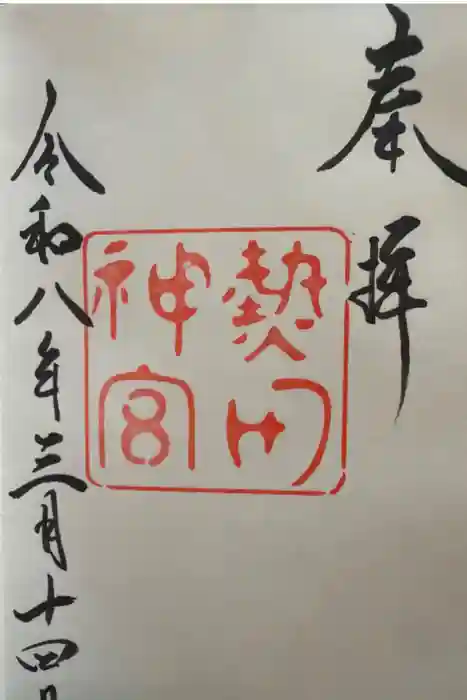 奉拝
熱田
神宮
令和八年三月十四日